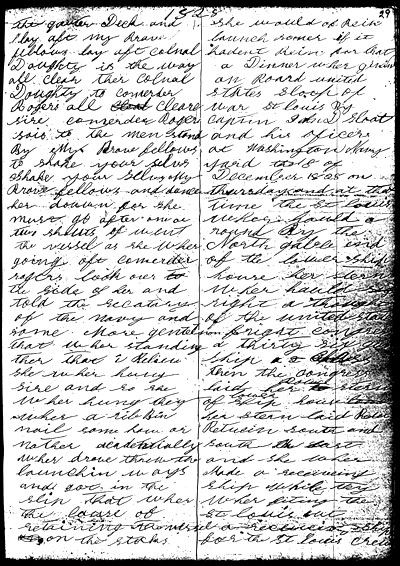 1828
29
the gauner Deck and
lay aft my Brave
fellows lay aft Colnal
Doughty is the way
all clear ther Colnal
Doughty to comerder
Rogers all cleare
sire comerder Roger
sais to the men Stand
By My Brave fellows
to shake your selvs
Shake your Selvs My
Brave fellows and dance
her down for she
must go after one or
two shouts if went
the vessel as she wher
going aft comerder
rogers look over to
the side of her and
told the secatury
of the navy and
some more gentel
that wher standing
ther that I Believe
she wher hung
sire and so she
wher hung they
wher a rib Bin
nail some how or
nother acadetatially
wher drove threw the
launchin ways
and got in the
slip that wher
the cause of
retaining
on the stocks
she would of Bein
launch somer if it
hadent Bein for that
a Dinner wher given
on Board united
states Sloop of
war St louis By
Captin I D Sloat
and his oficers
at Washington Navy
yard the 18 of
December 1828 on
thursday and at that
time the St louis
wher hauld a
round By the
North gable end
of the lower ship
house her stern
wher hauld
right a
of the united states
fright
a thirty six
ship
then the congress
laid her stern
of ship house
her stern laid
Betwin south and
south East
and she wher
Made a receiving
ship while they
wher fiting the
St louis out
a receiving ship
for the St louis crew